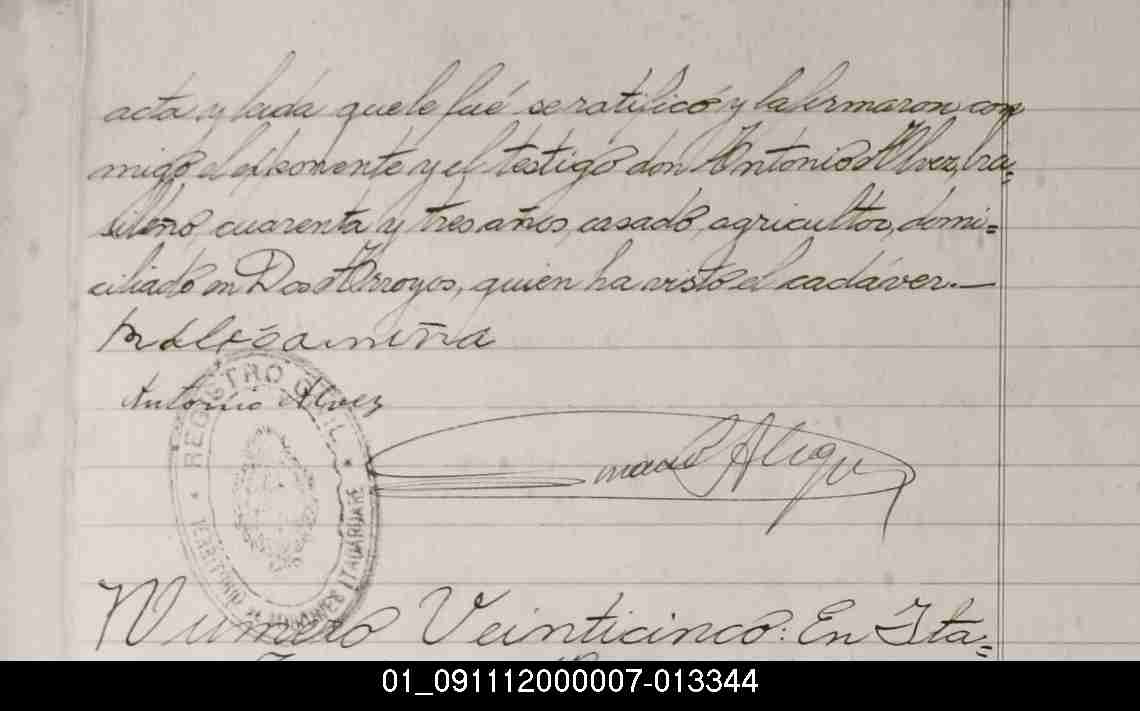 acta y leida que le fué se ratificó y la firmaron con
migo el exponente y el testigo don Antonio Alvez, bra=
sileño, cuarenta y tres años, casado, agricultor, domi=
ciliado en Dos Arroyos, quien ha visto el cadáver.—
Antonio Alvez
REGISTRO CIVIL
TERRITORIO DE MISIONES ITACARUARE
Numero Veinticinco: En Ita=
01_091112000007-013344